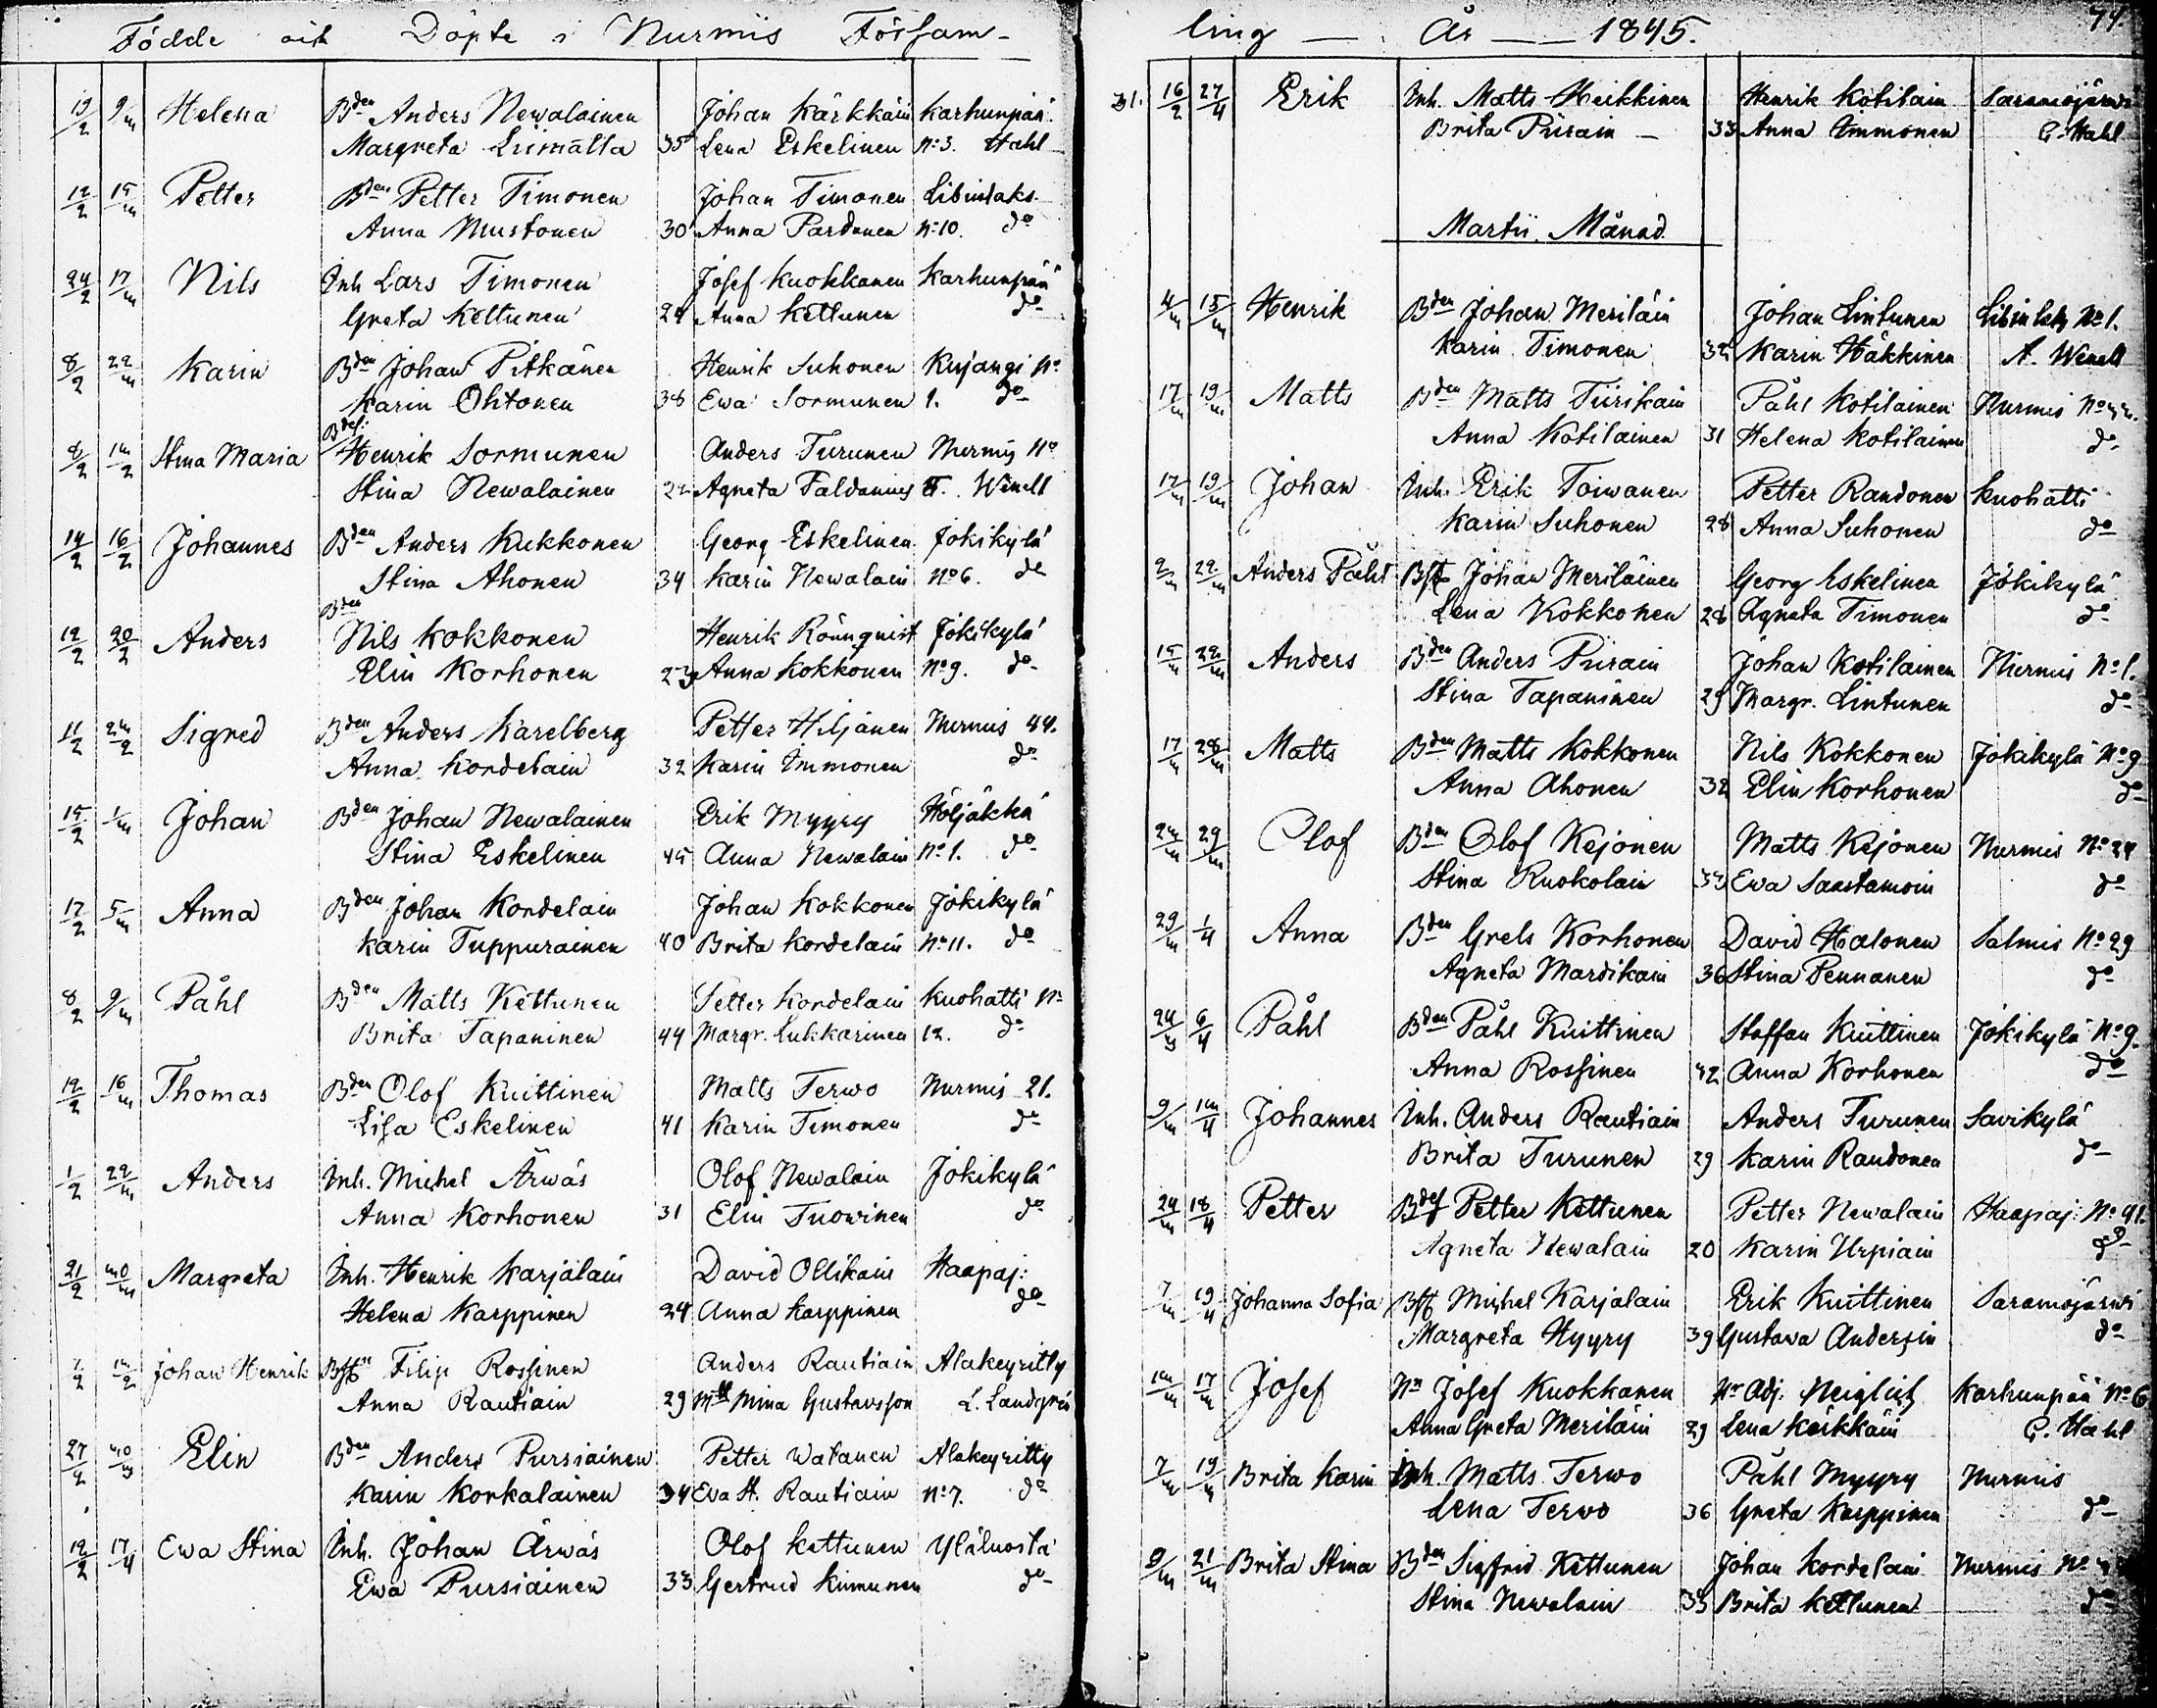 Födde och Döpte i Nurmis Församling År 1845.
74
19/2 9/m Helena Bden Anders Newalainen Johan Kärkkäin Karhunpää
Margreta Liimatta 35 Lena Eskelinen No 3. Hahl
12/2 15/m Petter Bden Petter Timonen Johan Timonen Libintaks
Anna Mustonen 30 Anna Pardonen No 10. do
24/2 17/m Nils Inh Lars Timonen Josef Kuokkanen Karhunpää
Greta Kettunen 24 Anna Kettunen do
8/2 22/m Karin Bden Johan Pitkänen Henrik Suhonen Kujangi No
Karin Ohtonen 38 Ewa Sormunen 1. do
8/2 Stina Maria Henrik Sormunen Anders Turunen Nurmis No
Stina Newalainen 22 Agneta Faldanius Wenell
14/2 16/2 Johannes Bden Anders Kukkonen Georg Eskelinen Jokikylä
Stina Ahonen 34 Karin Newalain No 6. do
12/2 20/2 Anders Bden Nils Kokkonen Henrik Rönnquist Jokikylä
Elin Korhonen 23 Anna Kokkonen No 9. do
11/2 Sigred Bden Anders Karelberg Petter Hiljanen Nurmis 44.
Anna Kordelain 32 Karin Immonen do
15/2 1/m Johan Bden Johan Newalainen Erik Myyry Höljäkkä
Stina Eskelinen 45 Anna Newalain No 1. do
17/2 5/m Anna Bden Johan Kordelain Johan Kokkonen Jokikylä
Karin Tuppurainen 40 Brita Kordelain No 11. do
8/2 9/m Påhl Bden Matts Kettunen Petter Kordelain Kuohatti No
Brita Tapaninen 44 Margr. Lukkarinen 12. do
12/2 16/m Thomas Bden Olof Kuittinen Matts Terwo Nurmis 21.
Lisa Eskelinen 41 Karin Timonen do
1/2 22/m Anders Inh. Michel Ärwäs Olof Newalain Jokikylä
Anna Korhonen 31 Elin Tuowinen do
21/2 Margreta Inh. Henrik Karjalain David Ollikain Haapaj:
Helena Karppinen 24 Anna Karppinen do
Johan Henrik Filip Rossinen Anders Rautiain Alakeyritty
Anna Rautiain 29 Mina Gustavsson L. Landgrén
27/2 Elin Bden Anders Pursiainen Petter Watanen Alakeyritty
Karin Korkalainen 34 Eva St. Rautiain No 7. do
12/2 17/4 Ewa Stina Inh. Johan Ärwäs Olof Kettunen Yläluosta
Ewa Pursiainen 33 Gertrud Kimunen do
31. 16/2 27/4 Erik Inh. Matts Heikkinen Henrik Kotilain Saramojärwi
Brita Piirain 33 Anna Immonen C. Hahl
Martii Månad
4/m 15/m Henrik Bden Johan Meriläin Johan Lintunen Libintaks No 1.
Karin Timonen 32 Karin Häkkinen A. Wenell
17/m 19/m Matts Bden Matts Tiirikain Påhl Kotilainen Nurmis
Anna Kotilainen 31 Helena Kotilainen do
17/m 19/m Johan Inh. Erik Toiwanen Petter Randonen Kuohatti
Karin Suhonen 28 Anna Suhonen do
2/m 22/m Anders Påhl Johan Meriläinen Georg Eskelinen Jokikylä
Lena Kokkonen 28 Agneta Timonen do
15/m 22/m Anders Bden Anders Piirain Johan Kotilainen Nurmis No 1.
Stina Tapaninen 29 Margr. Lintunen do
17/m 28/m Matts Bden Matts Kokkonen Nils Kokkonen Jokikylä No 9
Anna Ahonen 32 Elin Korhonen do
29/m Olof Bden Olof Kejonen Matts Kejonen Nurmis No 24
Stina Ruokolain 33 Ewa Saastamoin do
29/m 1/4 Anna Bden Grels Korhonen David Halonen Salmis No 29
Agneta Mardikain 36 Stina Pennanen do
24/m 6/4 Påhl Bden Påhl Kuittinen Staffan Kuittinen Jokikylä No 9.
Anna Rossinen 42 Anna Korhonen do
9/m Johannes Inh. Anders Rautiain Anders Turunen Savikylä
Brita Turunen 29 Karin Randonen do
24/m 18/4 Petter Petter Kettunen Petter Newalain Haapaj: No 41.
Agneta Newalain 20 Karin Urpiain do
7/m 19/4 Johanna Sofia Michel Karjalain Erik Kuittinen Saramojärwi
Margreta Hyyry 39 Gustava Andersin do
17/m Josef Josef Kuokkanen Hr Adj. Neiglick Karhunpää No 6
Anna Greta Meriläin 29 Lena Kärkkäin C. Hahl
7/m 19/m Brita Karin Inh. Matts Terwo Påhl Myyry Nurmis
Lena Terwo 36 Greta Karppinen do
9/m 21/m Brita Stina Bden Sigfrid Kettunen Johan Kordelain Nurmis No
Stina Newalain 33 Brita Kettunen do